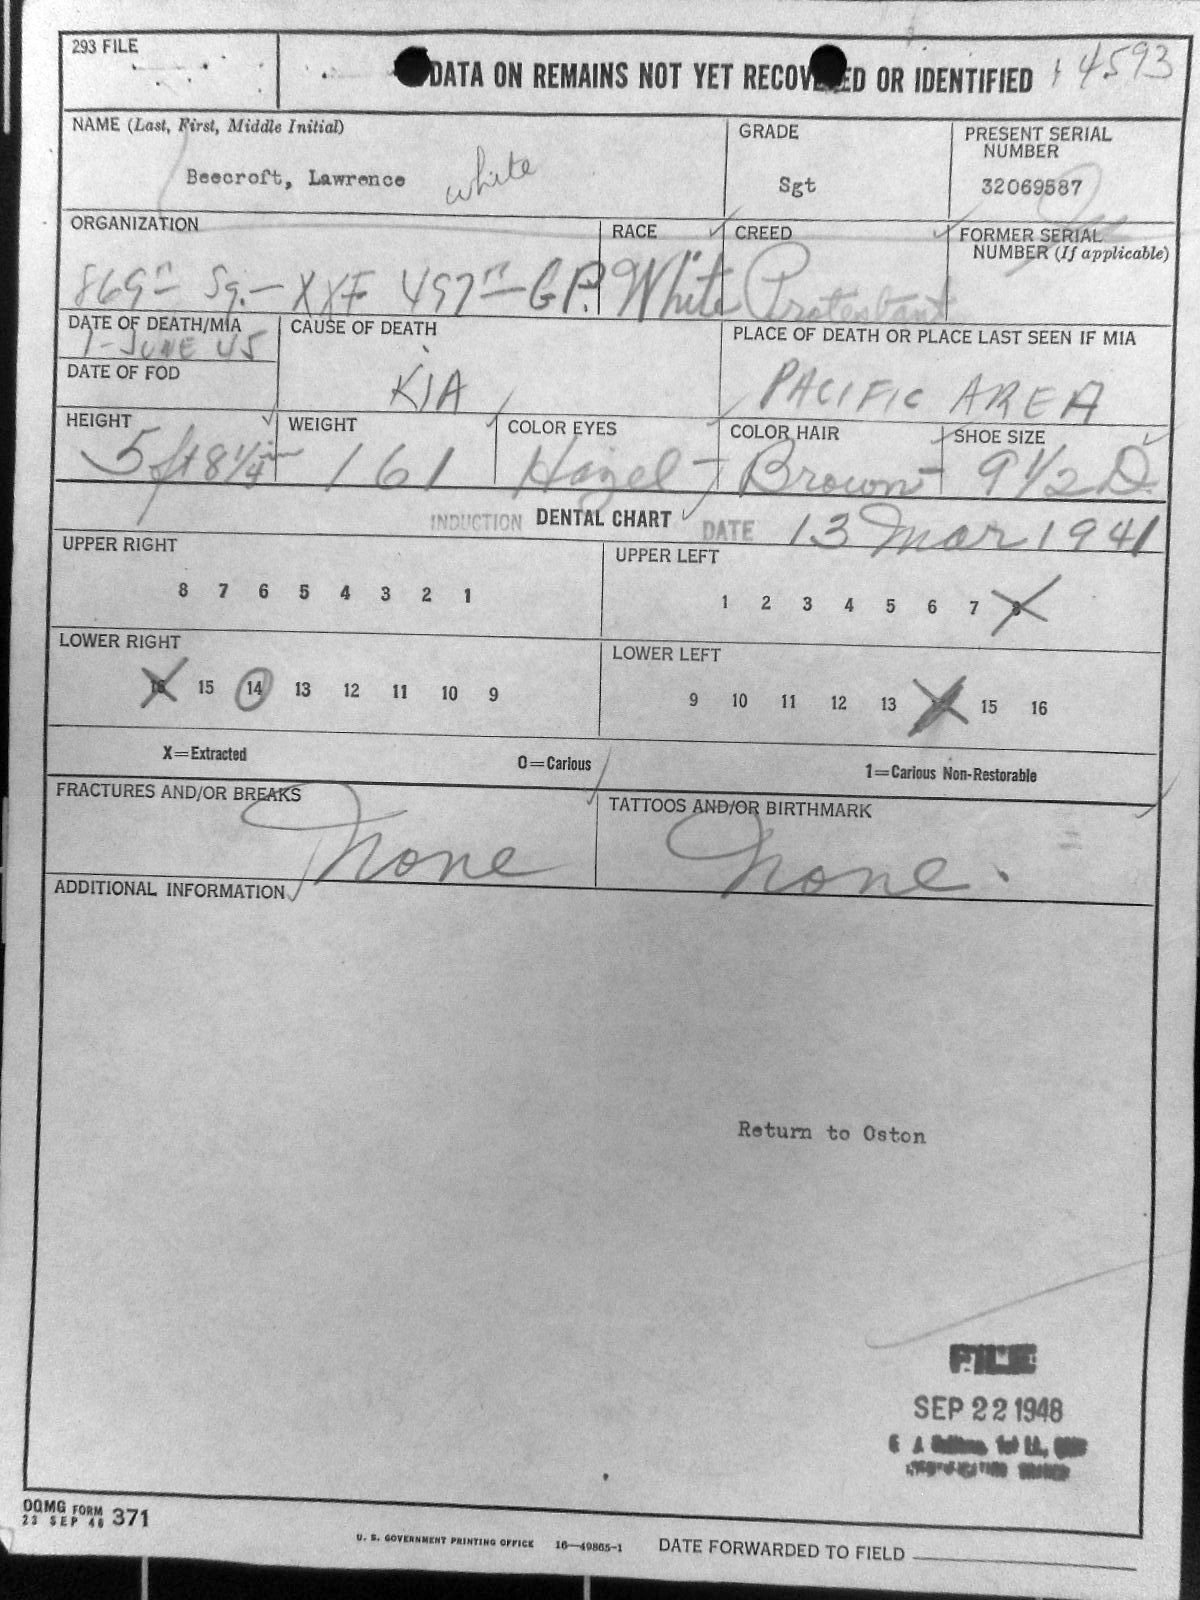 293 FILE
DATA ON REMAINS NOT YET RECOVERED OR IDENTIFIED
4593
NAME (Last, First, Middle Initial)
Beecroft, Lawrence
white
GRADE
Sgt
PRESENT SERIAL
NUMBER
32069587
ORGANIZATION
869th Sq.- XXF 497th-GP.
RACE
White
CREED
Protestant
FORMER SERIAL
NUMBER (If applicable)
DATE OF DEATH/MIA
1-JUNE 45
DATE OF FOD
CAUSE OF DEATH
KIA
PLACE OF DEATH OR PLACE LAST SEEN IF MIA
PACIFIC AREA
HEIGHT
5 ft 8 1/4 in
WEIGHT
161
COLOR EYES
Hazel
COLOR HAIR
Brown
SHOE SIZE
9 1/2 D
INDUCTION DENTAL CHART DATE 13 Mar 1941
UPPER RIGHT
8 7 6 5 4 3 2 1
UPPER LEFT
1 2 3 4 5 6 7 8
LOWER RIGHT
16 15 14 13 12 11 10 9
LOWER LEFT
9 10 11 12 13 15 16
X=Extracted
O=Carious
1=Carious Non-Restorable
FRACTURES AND/OR BREAKS
None
TATTOOS AND/OR BIRTHMARK
None.
ADDITIONAL INFORMATION
Return to Oston
FILE
SEP 22 1948
OQMG FORM 371
23 SEP 46
U. S. GOVERNMENT PRINTING OFFICE 16—49865-1
DATE FORWARDED TO FIELD